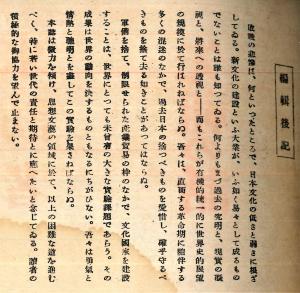 編輯後記
敗戰の悲慘は、何といつたところで、日本文化の低さと弱さに根ざ
してゐる。新文化の建設といふ大業が、いかに易々として成るもの
でないことは誰も知つてゐる。何よりもまづ過去の究明と、現實の凝
視と、將來への透視と——而もこれらが有機的統一的に世界史的展望
の規模に於て行はれねばならぬ。吾々は、直面する革命期に隨伴する
多くの混迷のなかで、過去日本の捨つべきものを愛惜し、確乎守るべ
きものを捨て去る如きことがあつてはならぬ。
軍備を捨て、制限せられた產業貿易の枠のなかで、文化國家を建設
することは、世界にとつても未曾有の大きな實驗課題であらう。その
成果は世界の動向を決するものともなるにちがひない。吾々は勇氣と
情熱と聰明とを盡してこの實驗を果さねばならぬ。
本誌は微力なを傾け、思想文藝の領域に於て、以上の困難な道を進む
べく、特に若い世代の責任と期待とに應へたいと念じてゐる。讀者の
積極的な御協力を望んで止まない。